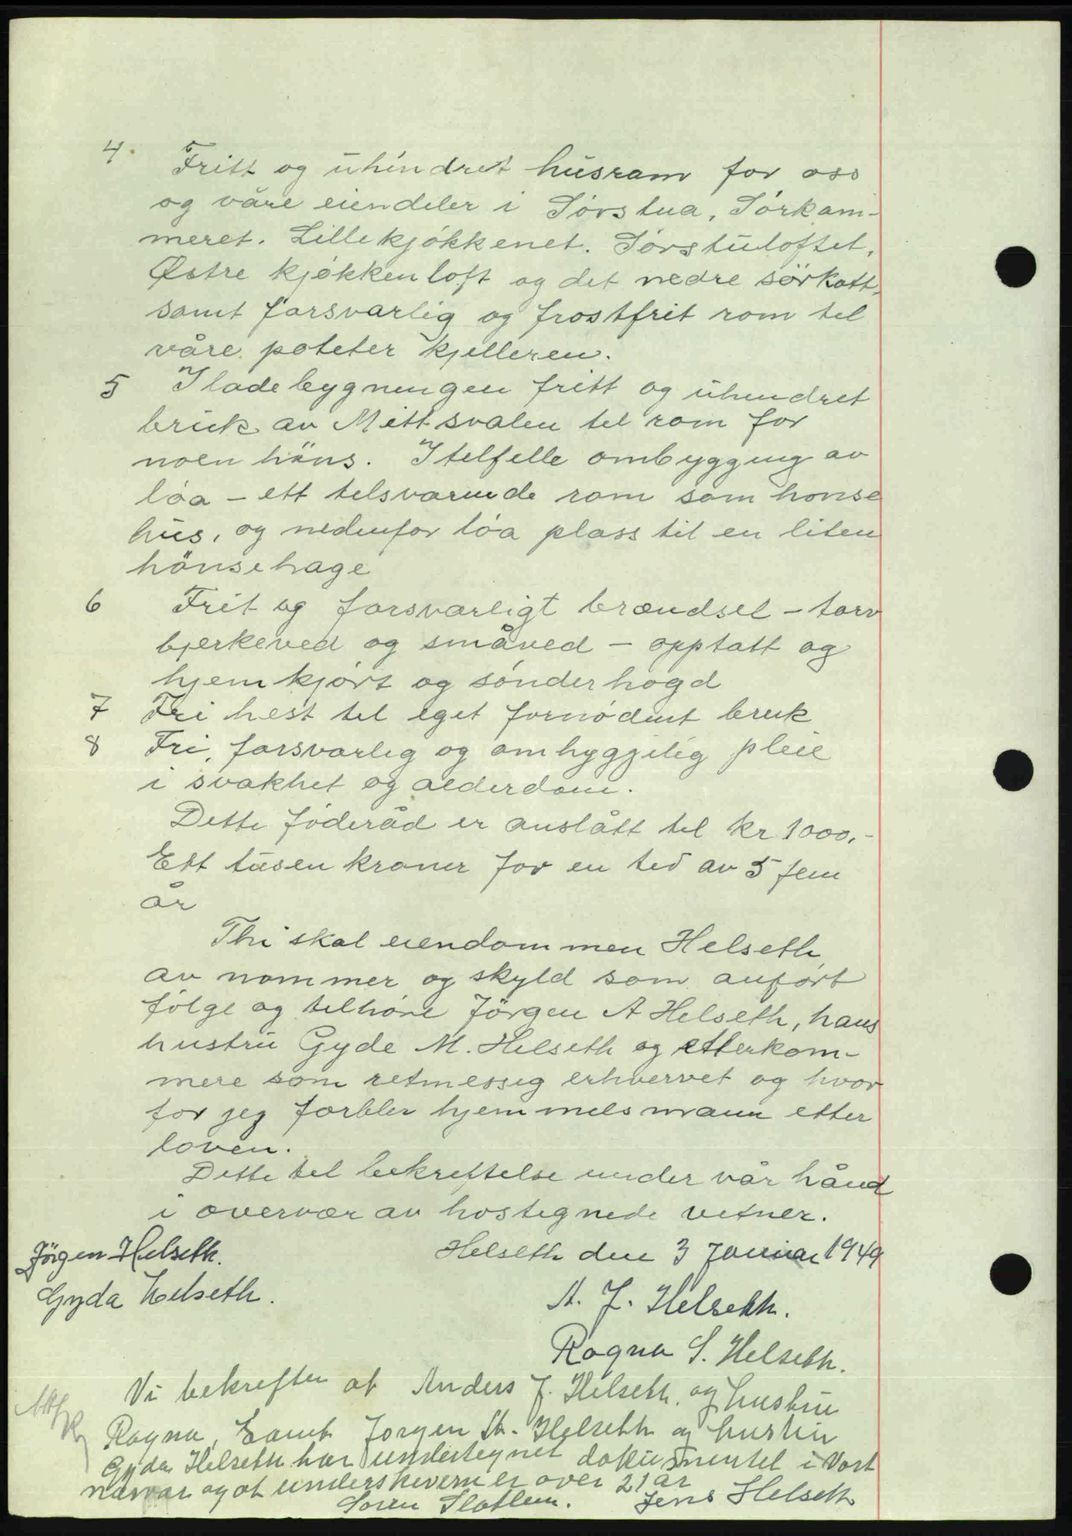 4. Fritt og uhindret husram for oss
og våre eiendeler i Sørstua, Sørkam-
meret. Lillekjøkkenet. Sørstuloftet,
Østre kjøkkenloft og det nedre sörkott,
samt forsvarlig og frostfrit rom til
våre poteter kjelleren.
5 I ladebygningen fritt og uhindret
bruk av Mittsvalen til rom for
noen höns. I telfelle ombygging av
løa – ett telsvarende rom som honse
hus, og nedenfor løa plass til en liten
hönsehage
6 Frit og forsvarligt brændsel – torv
bjerkeved og småved – opptatt og
hjemkjørt og sönderhogd
7 Fri hest til eget fornødent bruk
8 Fri, forsvarlig og omhyggelig pleie
i svakhet og alderdom.
Dette føderåd er anslått til kr 1000,-
Ett tusen kroner for en tid av 5 fem
år
Thi skal eiendommen Helseth
av nommer og skyld som anført
følge og tilhøre Jörgen A Helseth, hans
hustru Gyde M. Helseth og etterkom-
mere som retmessig erhvervet og hvor
for jeg forbler hjemmelsmann etter
loven.
Dette til bekreftelse under vår hånd
i overvær av hostegnede vetner.
Helseth den 3 Januar 1949
Jörgen Helseth.
Gyda Helseth.
A. J. Helseth.
Ragna S. Helseth.
Vi bekrefter at Anders J. Helseth og hustru
Ragna, Samt Jorgen A. Helseth og hustru
Gyda Helseth har undertegnet dokumentet i Vort
nærvær og at underskrivern er over 21 år
Jens Helseth